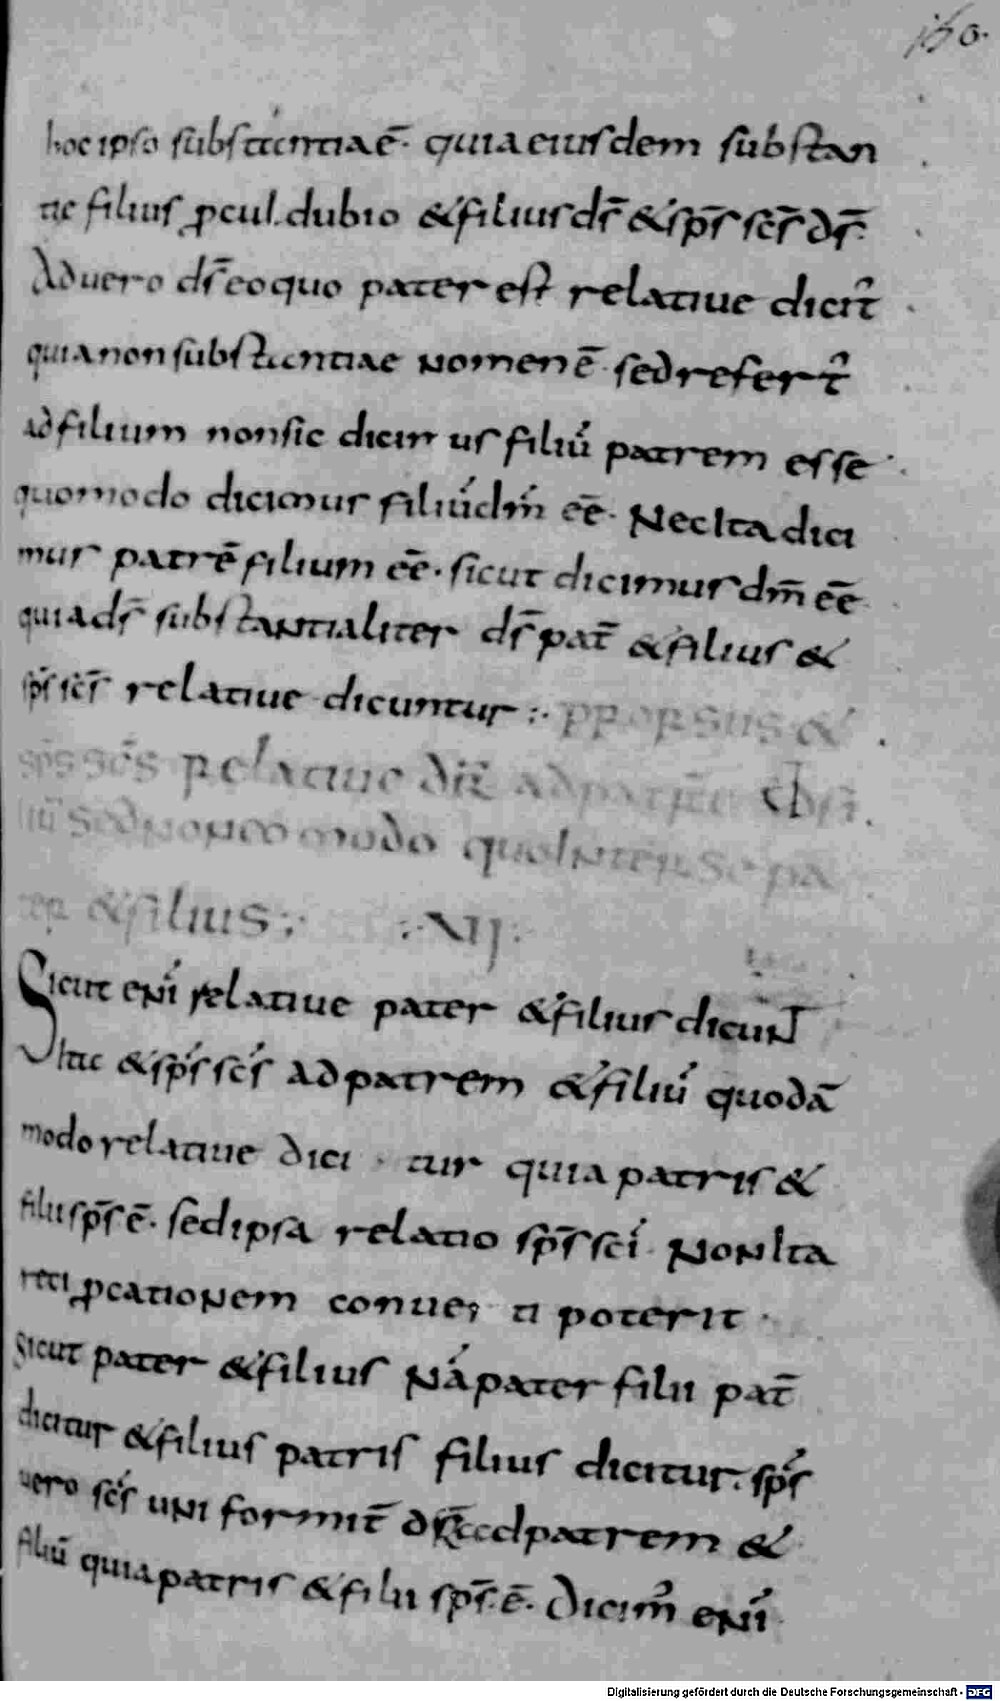 160.
hoc ipso substantiae ē· quia eiusdem substan
tie filius ꝓcul dubio & filius ds̄ & sp̄s sc̄s ds̄.
Ad uero ds̄ eo quo pater est relatiue dicit̄
quia non substantiae nomen ē· sed refert̄
ad filium non sic dicim us filiū patrem esse
quomodo dicimus filiū dm̄ eē· Nec Ita dici
mur patrē filium eē· sicut dicimus dm̄ eē
quia ds̄ substantialiter ds̄ pat̄ & filius &
sp̄s sc̄s relatiue dicuntur :· RRORSUS &
sp̄s sc̄s Relatiue dr̄ ad patrē & fi
liū sed non eo modo qualiter se pa
ter & filius :· ·:XII:·
Sicut enī relatiue pater & filius dicunt
Itac & sp̄s sc̄s ad patrem & filiū quodā
modo relatiue dici tur quia patris &
filii sp̄s ē· sed ipsa relatio sp̄s scī Non Ita
reci ꝓcationem conuer ti poterit ·
Sicut pater & filius Nā pater filii pat̄
dicitur & filius patris filius dicitur· sp̄s
uero sc̄s uni formit̄ dr̄ ad patrem &
filiū quia patris & filii sp̄s· ē· Dicim̄ enī
Digitalisierung gefördert durch die Deutsche Forschungsgemeinschaft - DFG